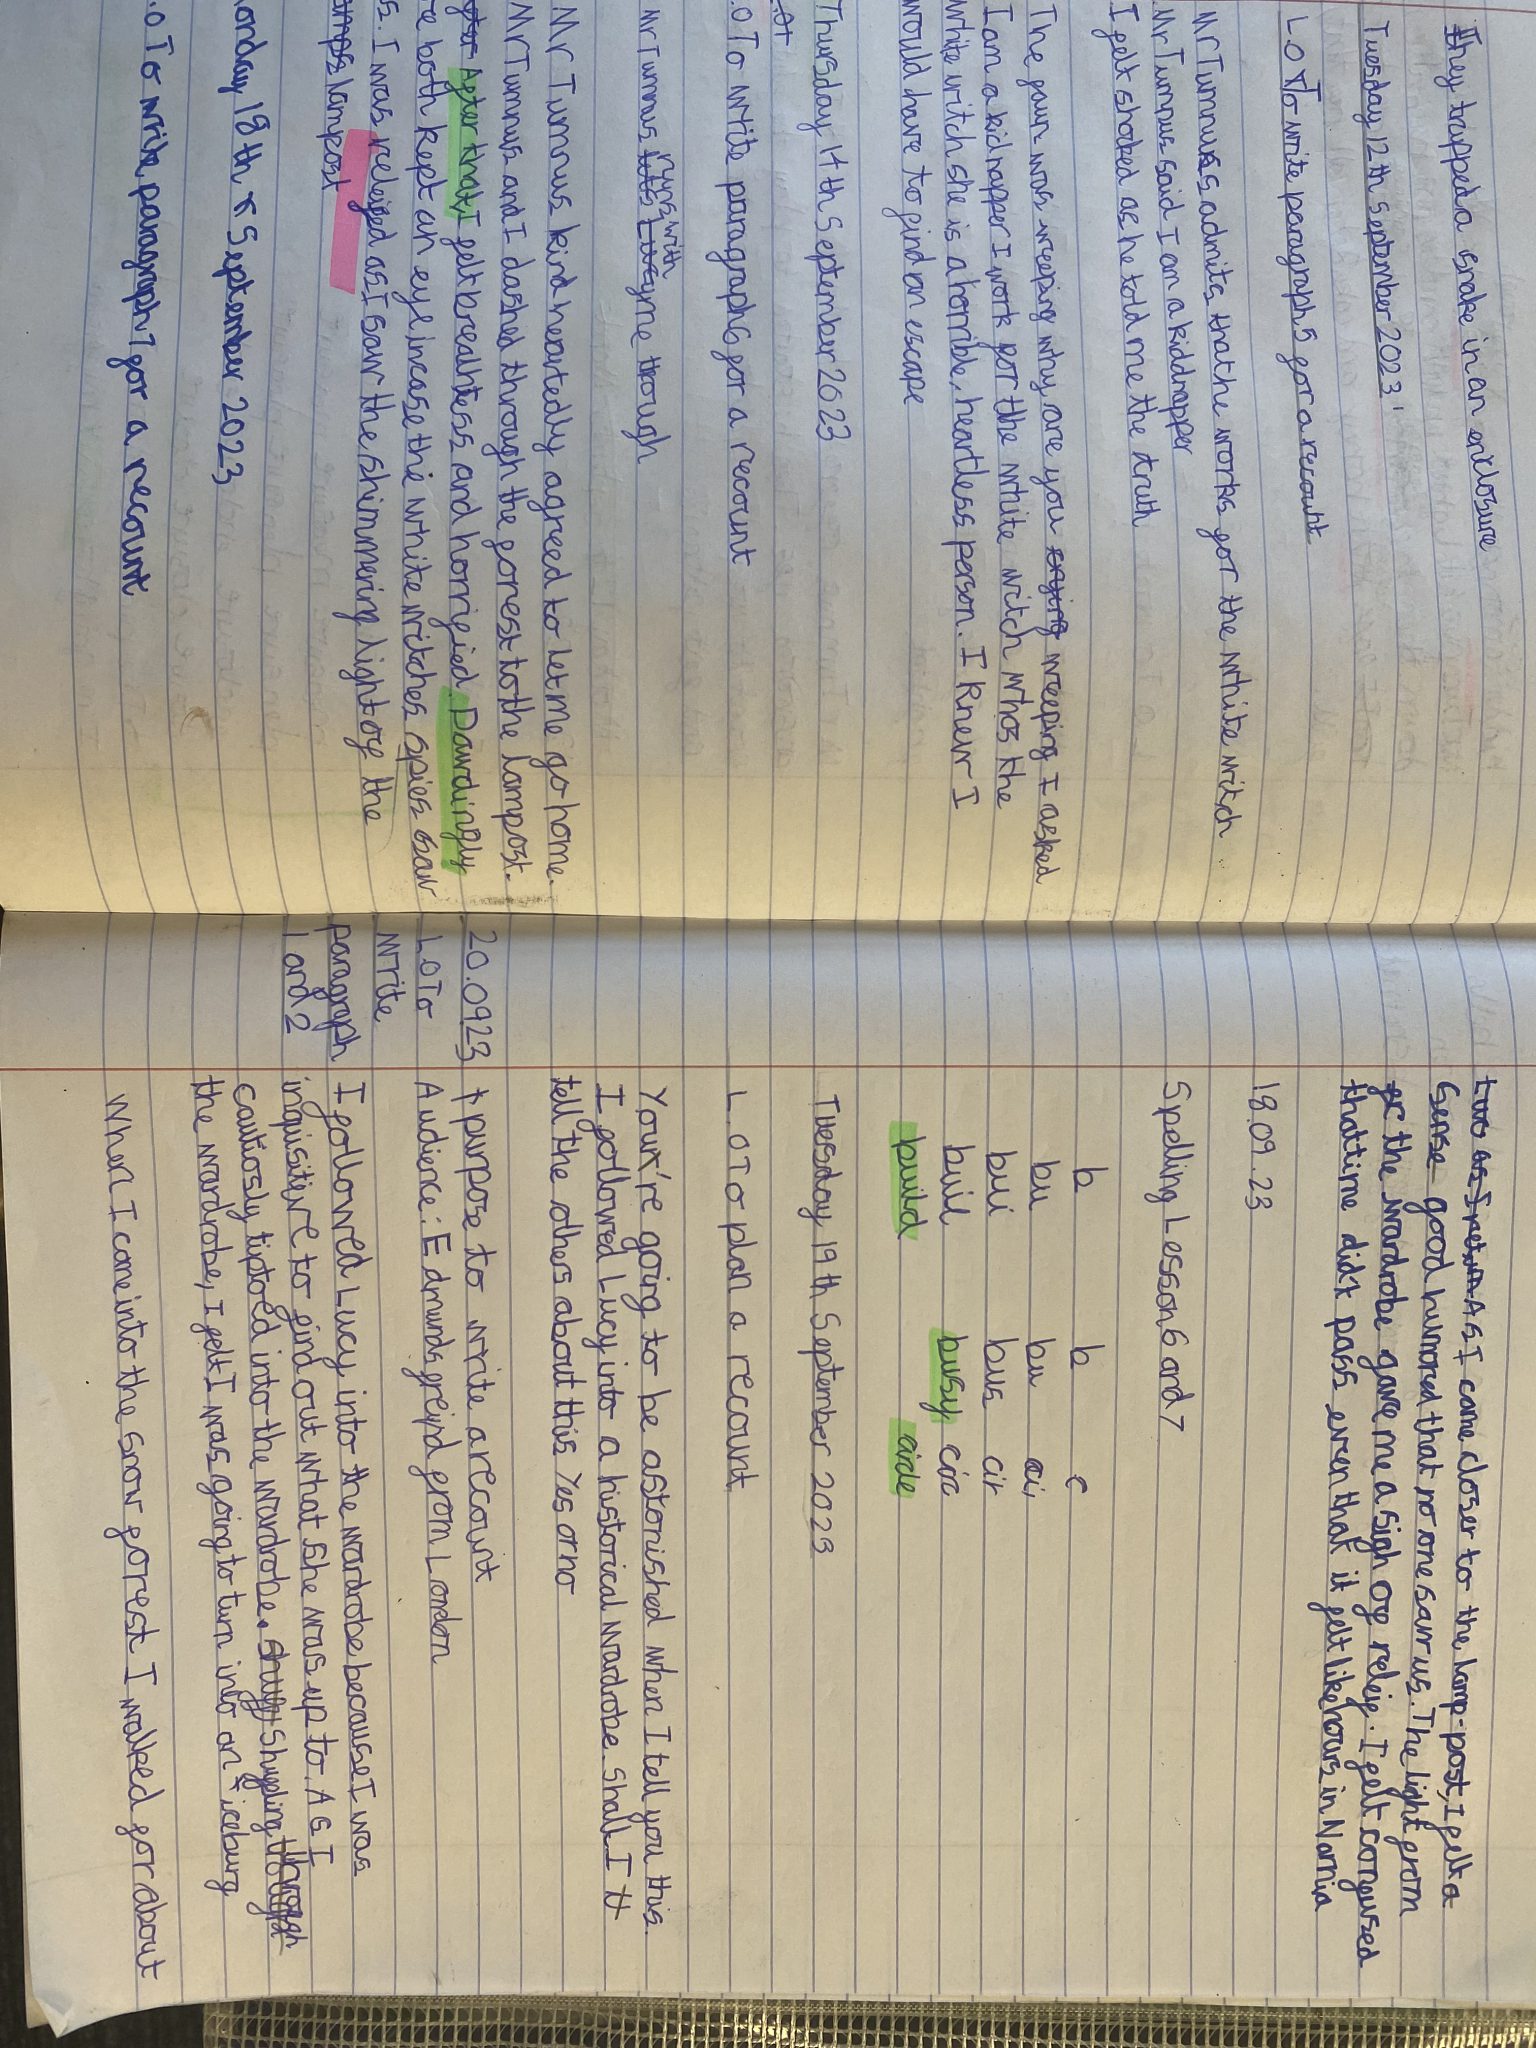 They trapped a snake in an enclosure
Tuesday 12th September 2023
LO To write paragraph 5 for a recount
Mr Tumnus admits that he works for the white witch
Mr Tumnus said I am a kiddnapper
I felt shocked as he told me the truth
The faun was weeping why are you crying weeping I asked
I am a kidnapper I work for the white witch whos the
white witch she is a horrible, heartless person. I knew I
would have to find an escape
Thursday 14th September 2023
.O To write paragraph 6 for a recount
Mr Tumnus runs with me through
Mr Tumnus kind heartedly agreed to let me go home.
Mr Tumnus and I dashed through the forest to the lampost.
After that, I felt breahtless and horrified. Dawdingly
re both kept an eye incase the white witches spies saw
s. I was releifed as I saw the shimmering light of the
lampost
onday 18th September 2023
.O To write paragraph 7 for a recount
As I came closer to the lamp-post, I felt a
sense good humored that no one saw us. The light from
the wardrobe gave me a sigh of relief. I felt confused
that time didt pass even that it felt like hours in Narnia
18.09.23
Spelling Lesson 6 and 7
b b c
bu bu ci
bui bus cir
buil busy circ
build circle
Tuesday 19th September 2023
L.O To plan a recount
Your're going to be astonished when I tell you this.
I followed Lucy into a historical wardrobe. Shall I
tell the others about this Yes or no
20.0923 purpose to write a recount
LO To Audience: Edmunds freind from London
write
paragraph I followed Lucy into the wardrobe because I was
1 and 2 inquisitive to find out what she was up to. As I
cautiosly tiptoed into the wardrobe. Shuffling through
the wardrobe, I felt I was going to turn into an iceburg
When I came into the snow forest I walked for about